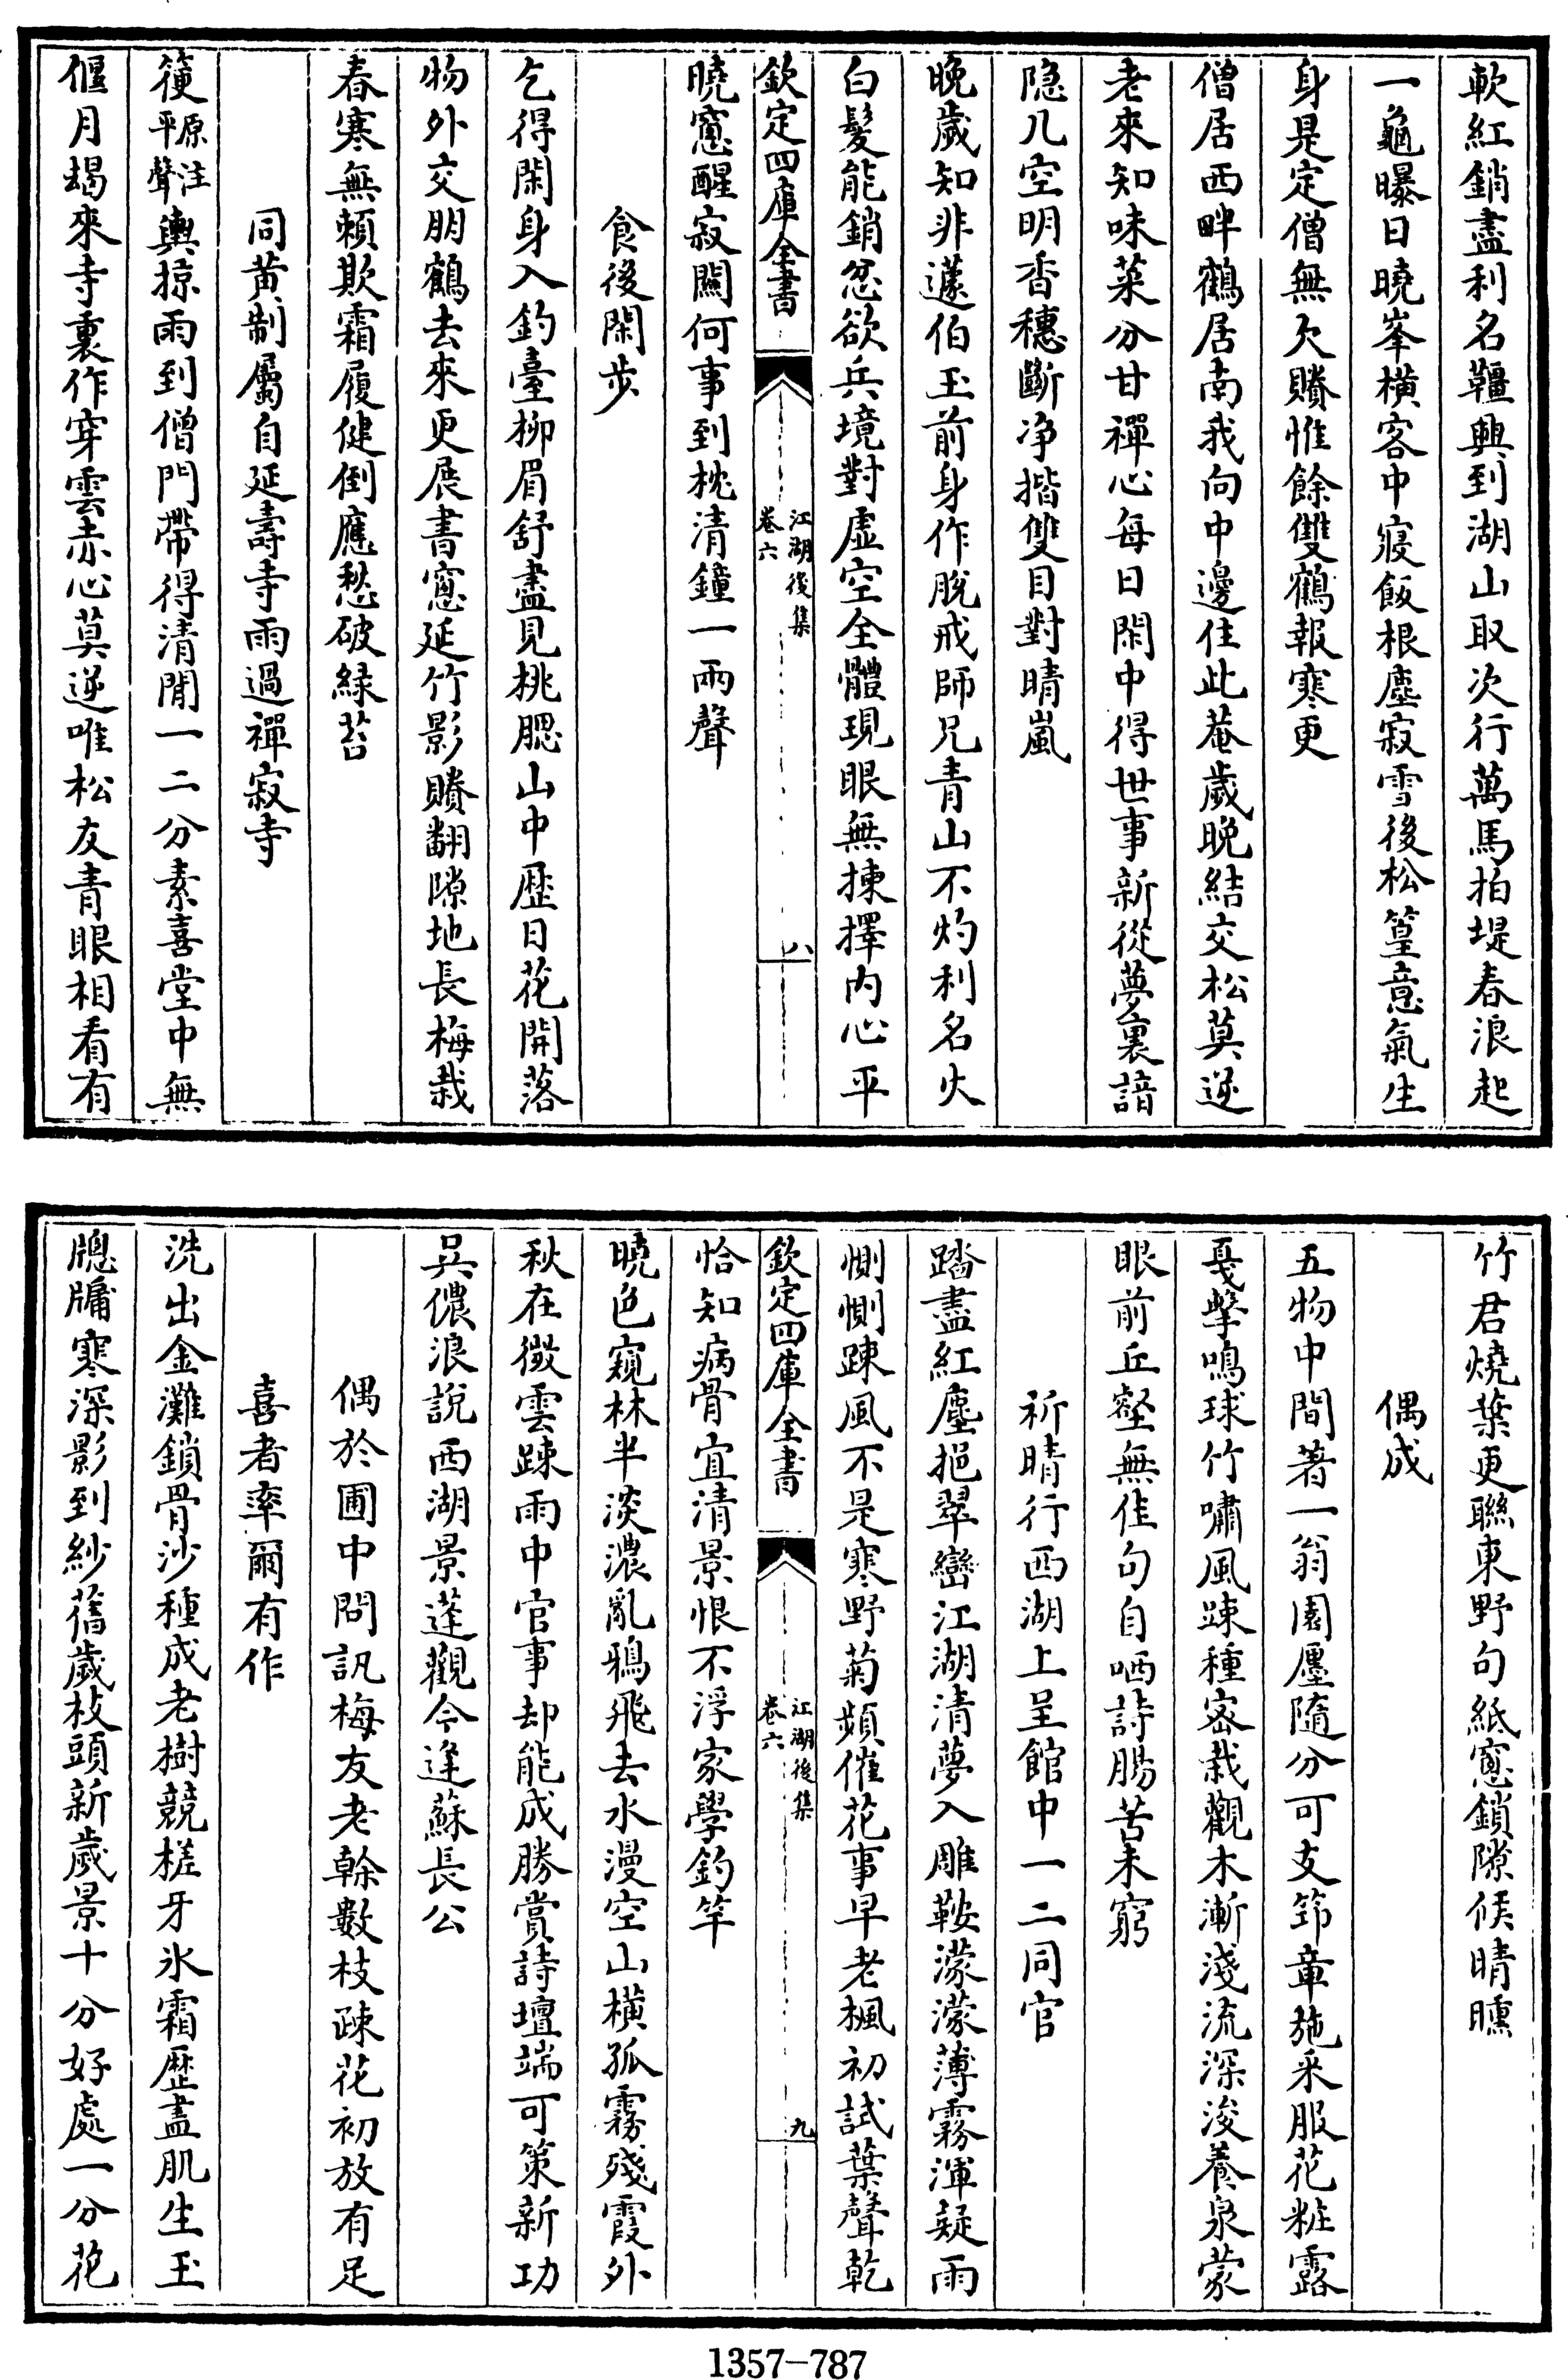 軟紅銷盡利名韁興到湖山取次行萬馬拍堤春浪起
一龜曝日曉峯橫客中寢飯根塵寂雪後松篁意氣生
身是定僧無欠賸惟餘雙鶴報寒更
僧居西畔鶴居南我向中邊住此菴歲晚結交松莫逆
老來知味菜分甘禪心每日閑中得世事新從夢裏諳
隐几空明香穗斷净揩雙目對晴嵐
晚歲知非蘧伯玉前身作脫戒師兄青山不灼利名火
白髪能銷忿欲兵境對虚空全體現眼無揀擇内心平
欽定四庫全書
江湖後集
卷六
八
曉窻醒寂闗何事到枕清鐘一兩聲
食後閑步
乞得閑身入釣臺柳眉舒盡見桃腮山中歴日花開落
物外交朋鶴去來更展書窻延竹影賸翻隙地長梅栽
春寒無頼欺霜履健倒應愁破緑苔
同黄制屬自延壽寺雨過禪寂寺
箯原注平聲輿掠雨到僧門帶得清閒一二分素喜堂中無
偃月朅來寺裏作穿雲赤心莫逆唯松友青眼相看有
竹君燒葉更聯東野句紙窻鎖隙候晴曛
偶成
五物中間著一翁園廛隨分可支筇章施采服花粧露
戞擊鳴球竹嘯風踈種宻栽觀木漸淺流深浚養泉蒙
眼前丘壑無佳句自哂詩腸苦未窮
祈晴行西湖上呈館中一二同官
踏盡紅塵挹翠巒江湖清夢入雕鞍濛濛薄霧渾疑雨
惻惻踈風不是寒野菊頻催花事早老楓初試葉聲乾
欽定四庫全書
江湖後集
卷六
九
恰知病骨宜清景恨不浮家學釣竿
曉色窺林半淡濃亂鴉飛去水漫空山橫孤霧殘霞外
秋在微雲踈雨中官事却能成勝賞詩壇端可策新功
吳儂浪說西湖景蓬觀今逢蘇長公
偶於圃中問訊梅友老榦數枝疎花初放有足
喜者率爾有作
洗出金灘鎖骨沙種成老樹競槎牙氷霜歴盡肌生玉
牎牖寒深影到紗舊歲枝頭新歲景十分好處一分花
1357-787